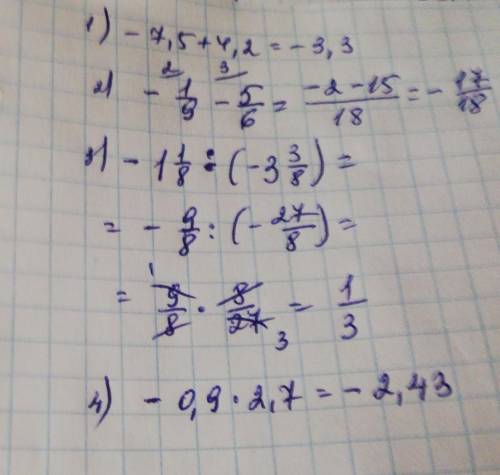 1) - 7,5 + 4,2 = - 3,3
2) - 1/9 - 5/6 = (-2 - 15)/18 = - 17/18
3) - 1 1/8 : (-3 3/8) =
= - 9/8 : (- 27/8) =
= 9/8 · 8/27 = 1/3
4) - 0,9 · 2,7 = - 2,43